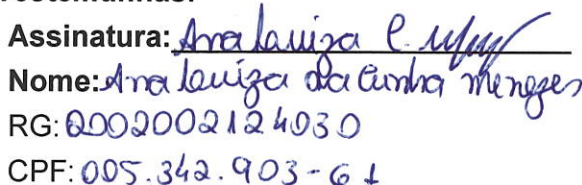 Testemunhas:
Assinatura: Ana Lauiza C.
Nome: Ana Lauiza da Cunha Menezes
RG: 2002002124030
CPF: 005.342.903-61